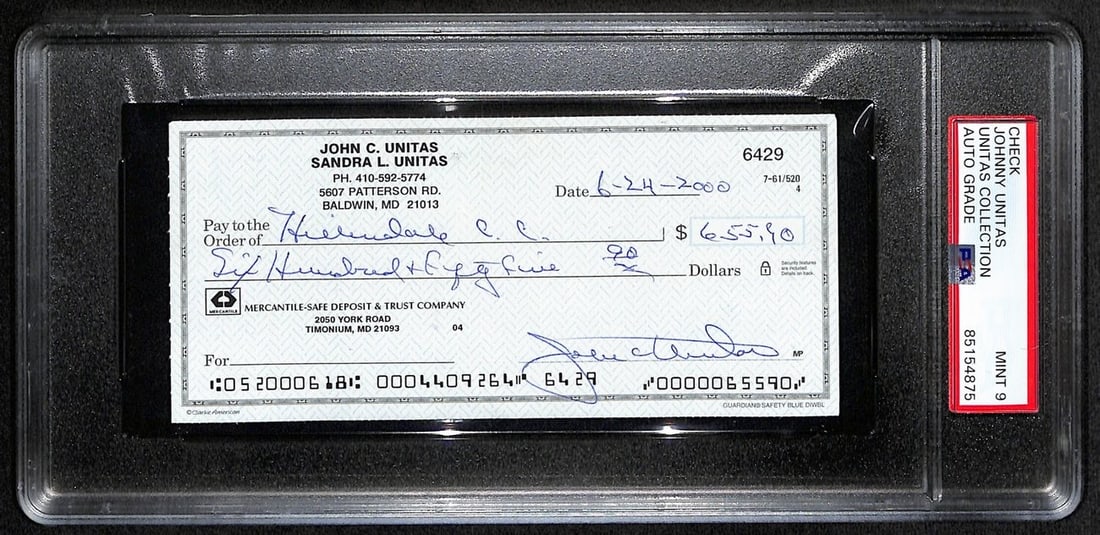 JOHN C. UNITAS
SANDRA L. UNITAS
PH. 410-592-5774
5607 PATTERSON RD.
BALDWIN, MD 21013
6429
Date 6-24-2000
7-61/520
4
Pay to the
Order of Hillendale C.C. $ 655.90
Six Hundred + Fifty Five 90/x Dollars
Security features
are included.
Details on back.
MERCANTILE
MERCANTILE-SAFE DEPOSIT & TRUST COMPANY
2050 YORK ROAD
TIMONIUM, MD 21093 04
For
John C Unitas
MP
⑆052000618⑆ 0004409264⑈ 6429 ⑈0000065590⑈
© Clarke American
GUARDIAN® SAFETY BLUE DWBL
CHECK
JOHNNY UNITAS
UNITAS COLLECTION
AUTO GRADE MINT 9
PSA
85154875